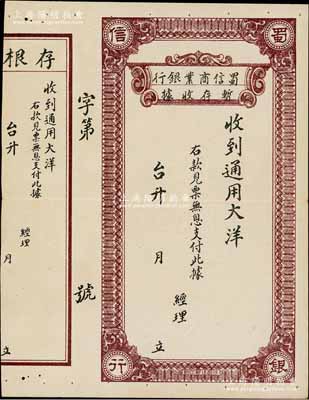 蜀信銀行
蜀信商業銀行
暫存收據
收到通用大洋
右款見票無息支付此據
台升
經理
月
立
字第
號
存根
收到通用大洋
右款見票無息支付此據
台升
經理
月
立